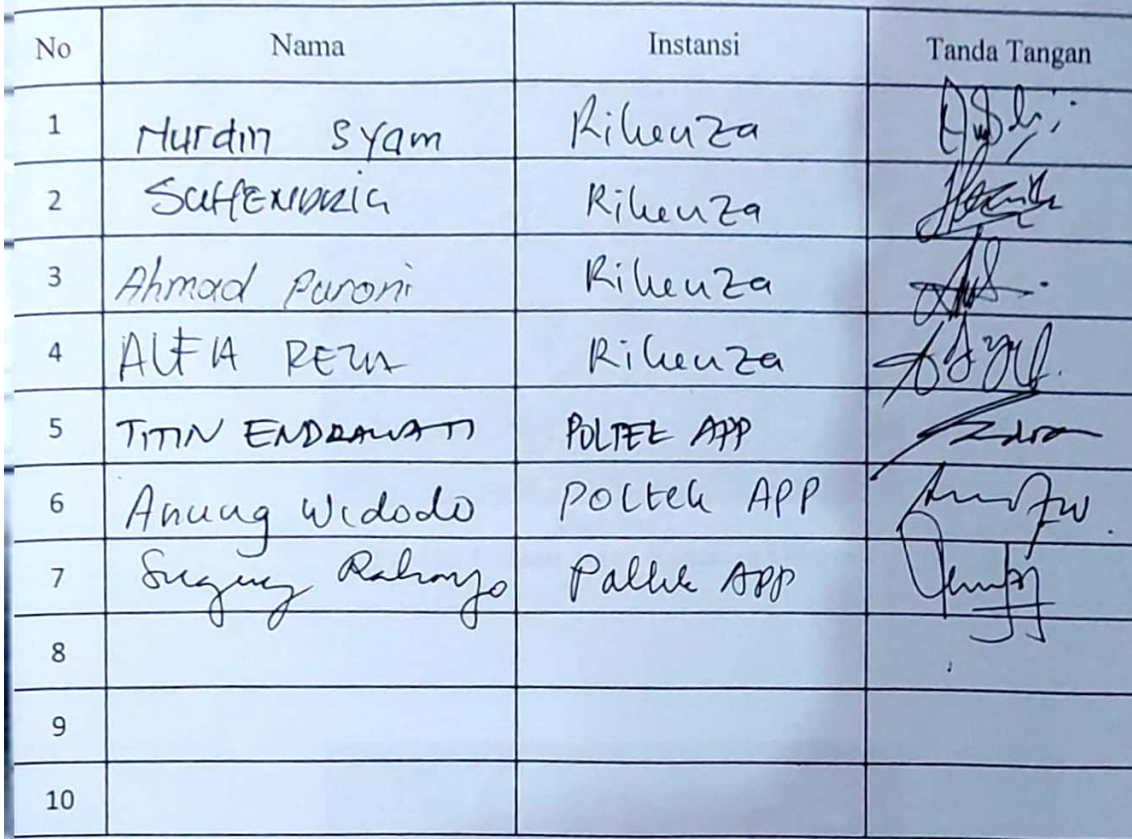 No Nama Instansi Tanda Tangan
1 Nurdin Syam Rikenza
2 Rikenza
3 Ahmad Paroni Rikenza
4 ALFIA REZA Rikenza
5 TITIN ENDRAWATI POLTEK APP
6 Anung Widodo POLTEK APP
7 Sugeng Raharjo Poltek APP
8
9
10